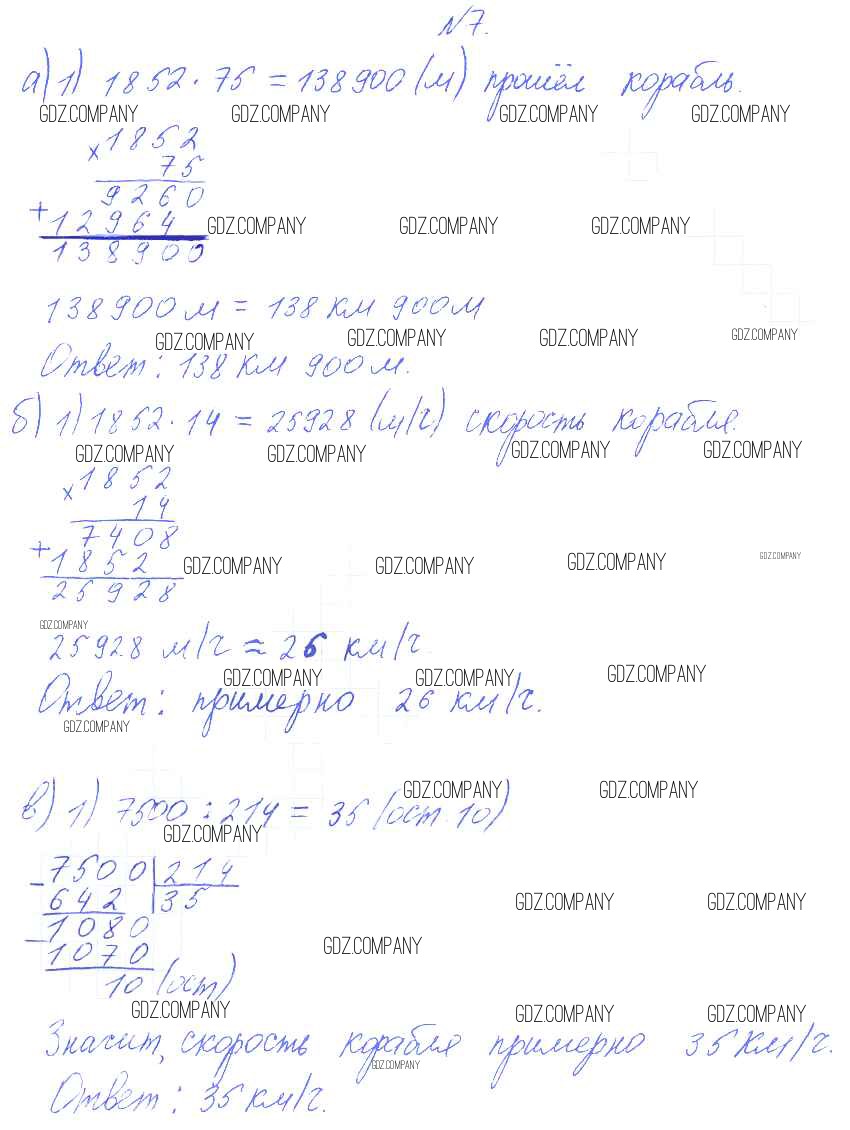 №7.
а) 1) 1852 · 75 = 138900 (м) прошёл корабль.
GDZ.COMPANY GDZ.COMPANY GDZ.COMPANY GDZ.COMPANY
× 1852
75
9260
+ 12964 GDZ.COMPANY GDZ.COMPANY GDZ.COMPANY
138900
138900 м = 138 км 900 м
GDZ.COMPANY GDZ.COMPANY GDZ.COMPANY GDZ.COMPANY
Ответ: 138 км 900 м.
б) 1) 1852 · 14 = 25928 (м/ч) скорость корабля.
GDZ.COMPANY GDZ.COMPANY GDZ.COMPANY GDZ.COMPANY
× 1852
14
7408
+ 1852 GDZ.COMPANY GDZ.COMPANY GDZ.COMPANY GDZ.COMPANY
25928
GDZ.COMPANY
25928 м/ч ≈ 26 км/ч.
GDZ.COMPANY GDZ.COMPANY GDZ.COMPANY
Ответ: примерно 26 км/ч.
GDZ.COMPANY
GDZ.COMPANY GDZ.COMPANY
в) 1) 7500 : 214 = 35 (ост. 10)
GDZ.COMPANY
– 7500 | 214
642 | 35
GDZ.COMPANY GDZ.COMPANY
1080
– 1070 GDZ.COMPANY
10 (ост)
GDZ.COMPANY GDZ.COMPANY GDZ.COMPANY
Значит, скорость корабля примерно 35 км/ч.
GDZ.COMPANY
Ответ: 35 км/ч.